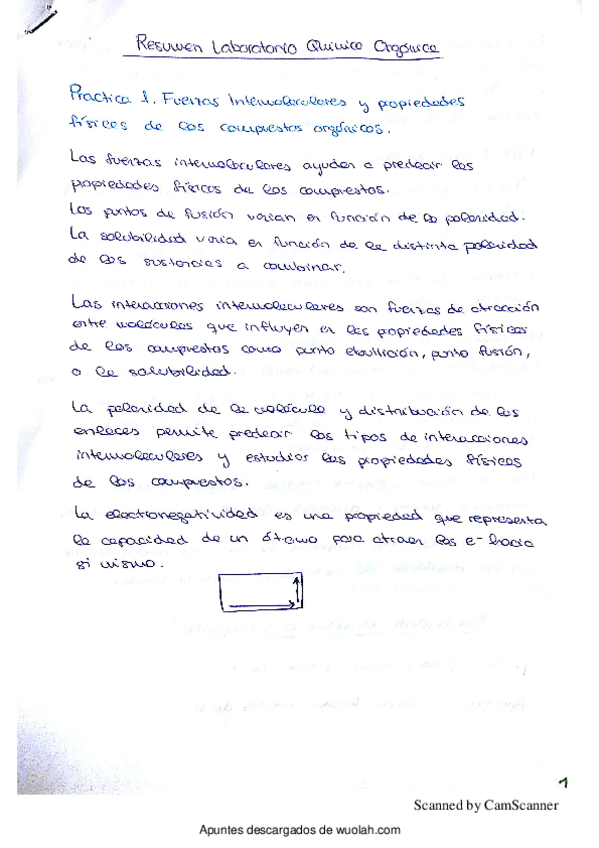 Resumen Laboratorio Química Orgánica
Practica 1. Fuerzas Intermoleculares y propiedades
físicas de los compuestos orgánicos.
Las fuerzas intermoleculares ayudan a predecir las
propiedades físicas de los compuestos.
Los puntos de fusión varian en función de la polaridad.
La solubilidad varia en función de la distinta polaridad
de las sustancias a combinar.
Las interacciones intermoleculares son fuerzas de atracción
entre moléculas que influyen en las propiedades físicas
de los compuestos como punto ebullición, punto fusión,
o la solubilidad.
La polaridad de la molécula y distribución de los
enlaces permite predecir los tipos de interacciones
intermoleculares y estudiar las propiedades físicas
de los compuestos.
La electronegatividad es una propiedad que representa
la capacidad de un átomo para atraer los e- hacia
si mismo.
1
Scanned by CamScanner
Apuntes descargados de wuolah.com